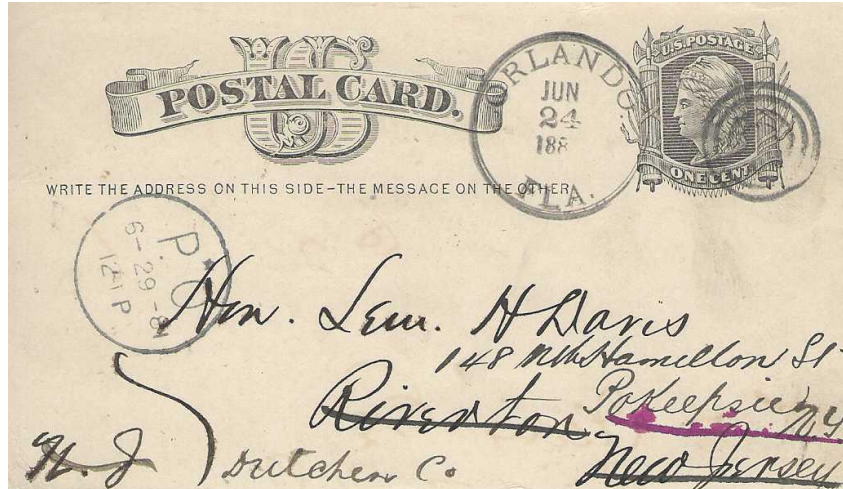 US
POSTAL CARD.
U.S. POSTAGE
ONE CENT
ORLANDO
JUN
24
188
FLA.
WRITE THE ADDRESS ON THIS SIDE-THE MESSAGE ON THE OTHER
P.O
6-29-81
12-1P
Hon. Lem. H Davis
148 Nth Hamillon St
Riverton Pokeepsie NY
N. J Dutchess Co New Jersey